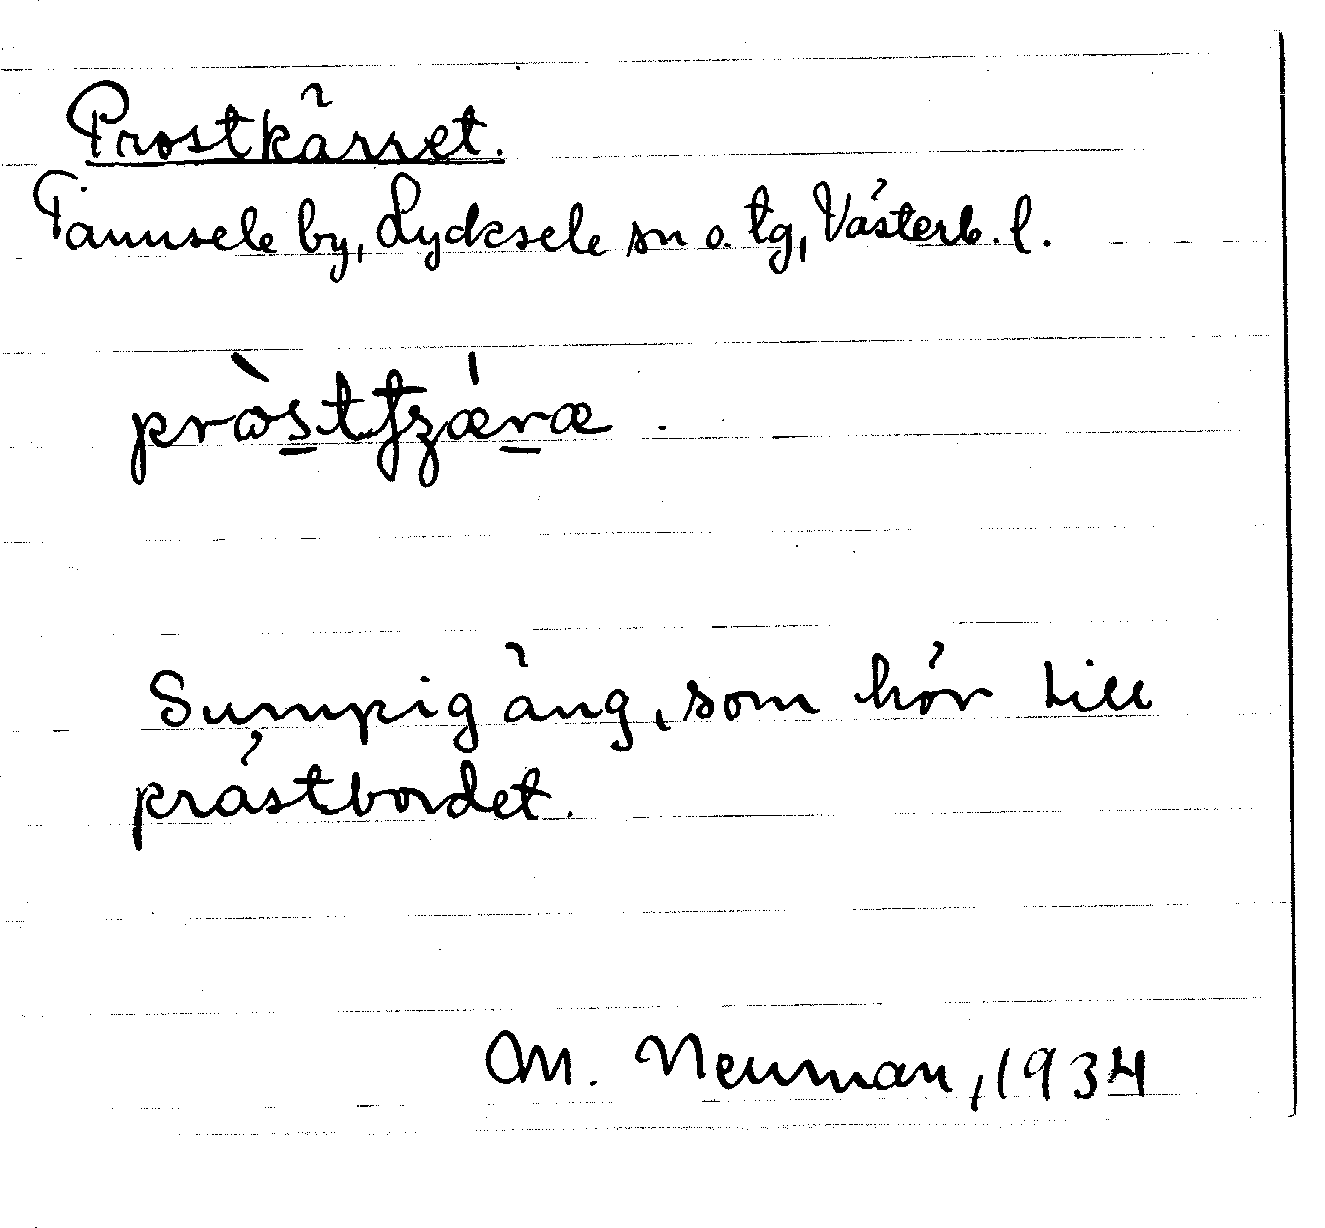 Prostkärret.
Tannsele by, Lycksele sn o. tg, Västerb. l.
pròstʧzǽræ.
Sumpig äng, som hör till
prästbordet.
M. Neuman, 1934